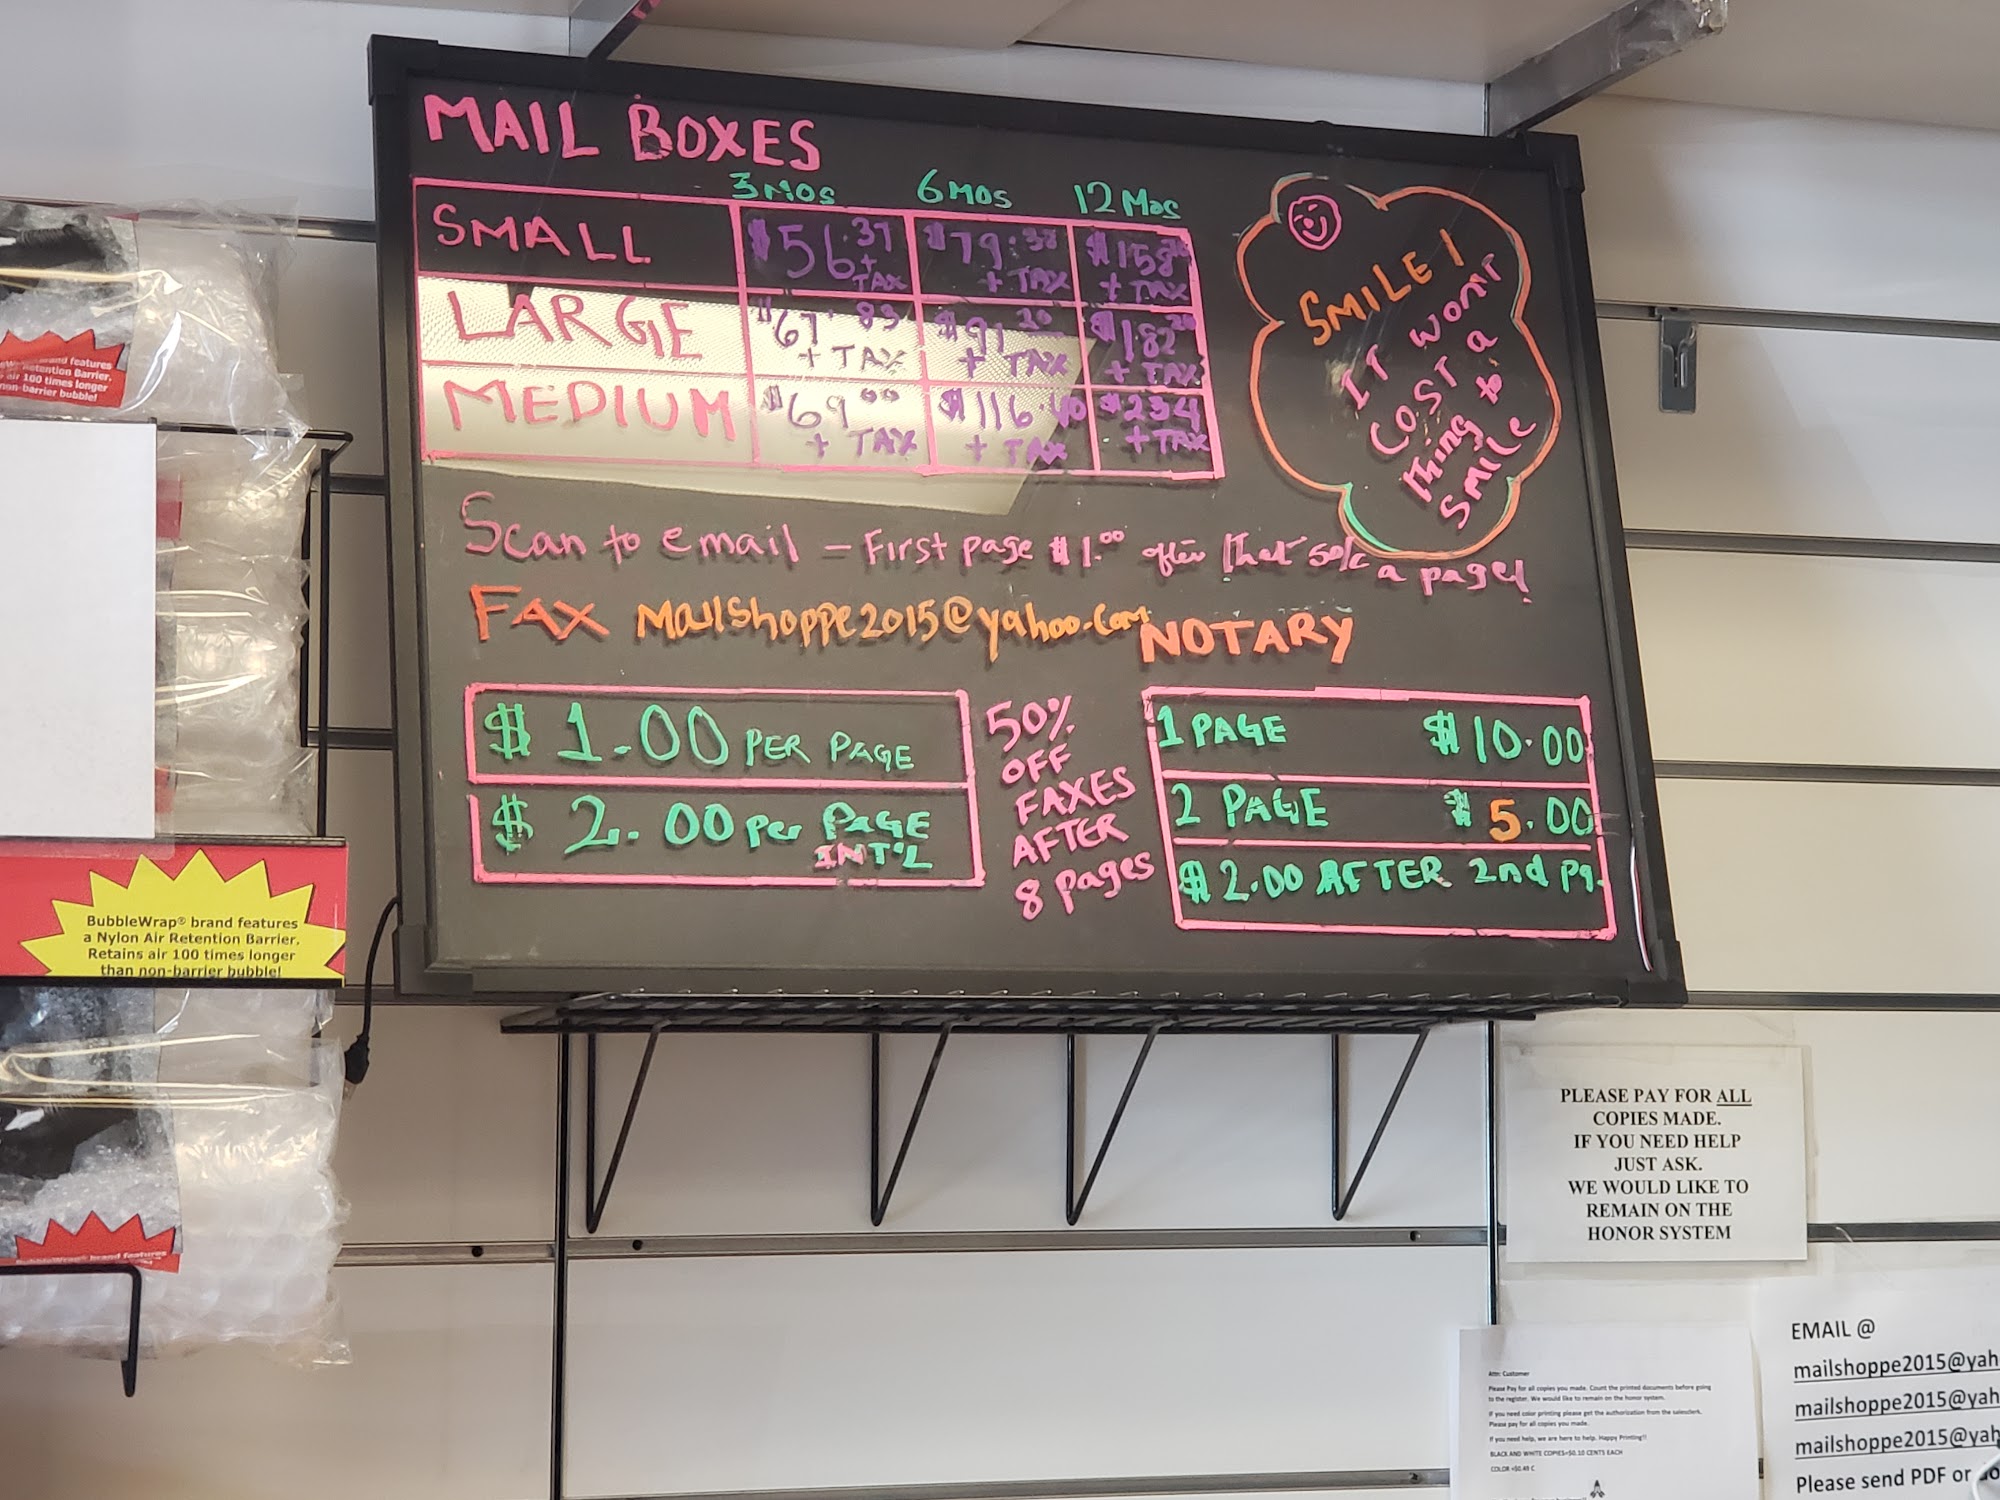 MAIL BOXES
3 MOS 6 MOS 12 Mos
SMALL $56.37 + TAX $79.38 + TAX $158 + TAX
LARGE $67.83 + TAX $91.20 + TAX $182 + TAX
MEDIUM $69.00 + TAX $116.40 + TAX $234 + TAX
SMILE!
IT WONT
COST a
thing to
SMILE
Scan to email - First page $1.00 after that 50/c a page!
FAX Mailshoppe2015@yahoo.com
NOTARY
$1.00 PER PAGE
$2.00 per PAGE
INT'L
50%
OFF
FAXES
AFTER
8 pages
1 PAGE $10.00
2 PAGE $5.00
$2.00 AFTER 2nd pg.
brand features
Retention Barrier.
air 100 times longer
non-barrier bubble!
BubbleWrap® brand features
a Nylon Air Retention Barrier.
Retains air 100 times longer
than non-barrier bubble!
BubbleWrap® brand features
PLEASE PAY FOR ALL
COPIES MADE.
IF YOU NEED HELP
JUST ASK.
WE WOULD LIKE TO
REMAIN ON THE
HONOR SYSTEM
Attn: Customer
Please Pay for all copies you made. Count the printed documents before going
to the register. We would like to remain on the honor system.
If you need color printing please get the authorization from the salesclerk.
Please pay for all copies you made.
If you need help, we are here to help. Happy Printing!!
BLACK AND WHITE COPIES=$0.10 CENTS EACH
COLOR =$0.49 C
EMAIL @
mailshoppe2015@yah
mailshoppe2015@yah
mailshoppe2015@yah
Please send PDF or